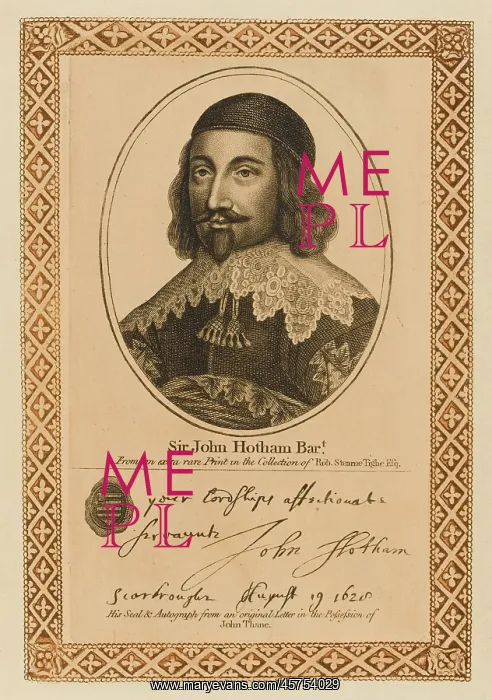 ME
PL
Sir John Hotham Bar.t
From an extra rare Print in the Collection of Rob. Stearne Tighe Esq.
ME
PL
your Lordships affectionate
Servant
John Hotham
Scarbrough August 19 1628
His Seal & Autograph from an original Letter in the Possession of
John Thane.
www.maryevans.com/45754029